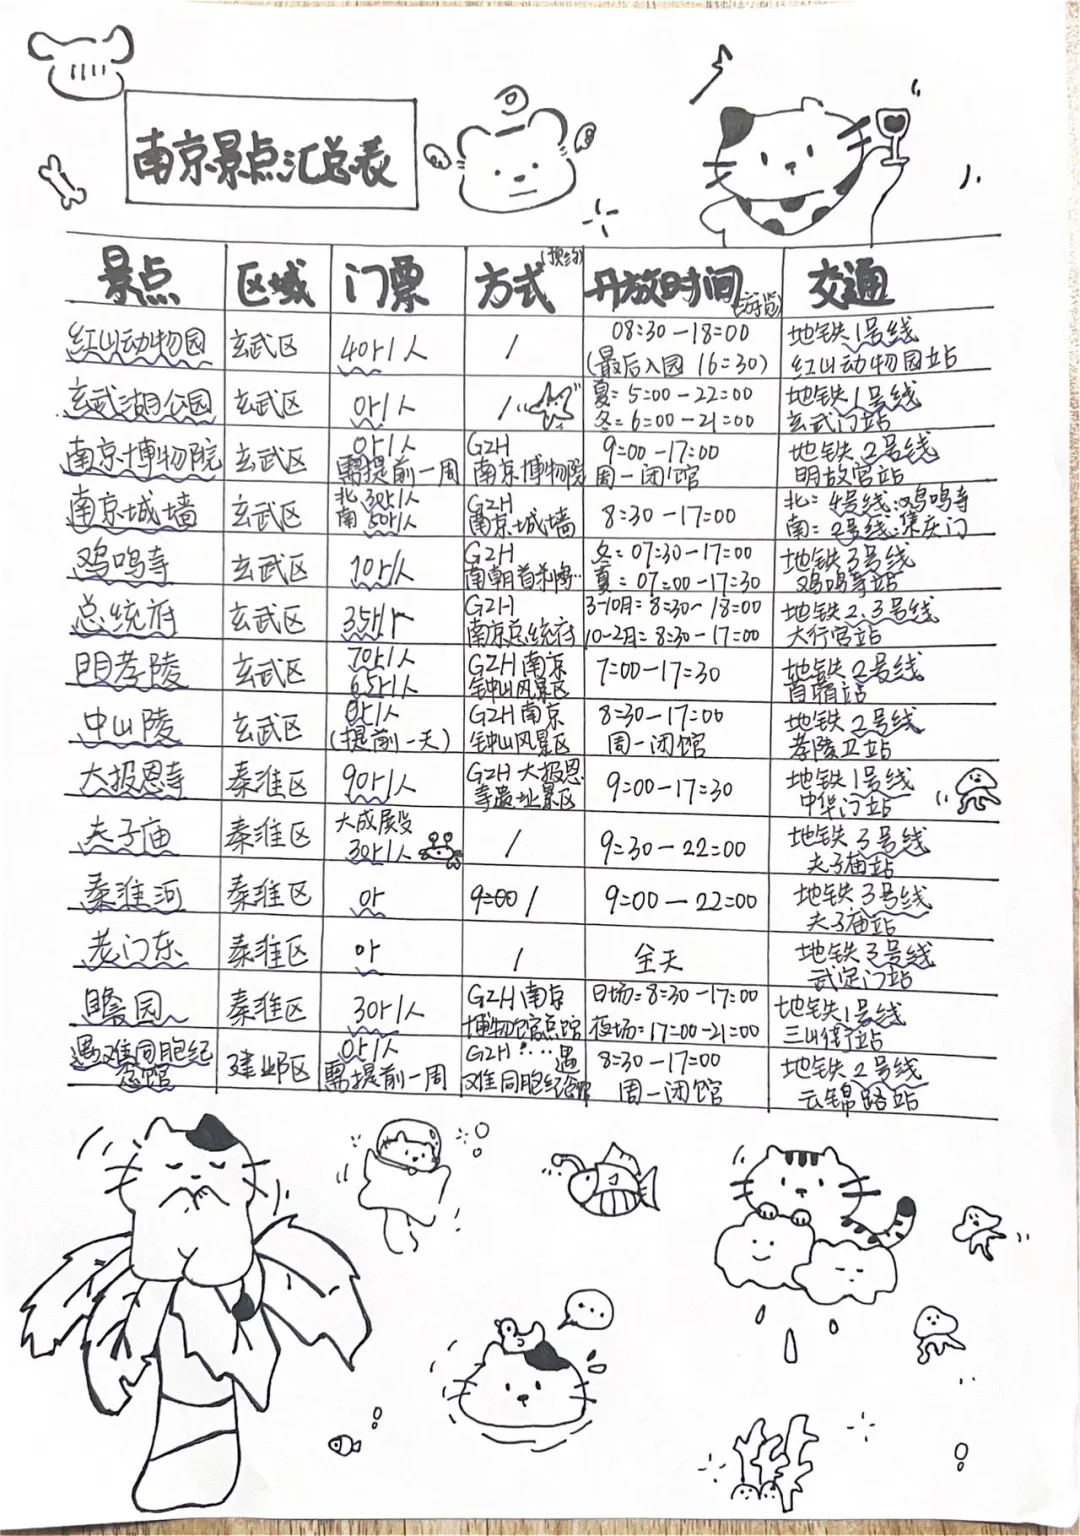 南京景点汇总表
景点 区域 门票 方式(预约) 开放时间(游览) 交通
红山动物园 玄武区 40r/人 / 08:30-18:00 地铁1号线
(最后入园 16:30) 红山动物园站
玄武湖公园 玄武区 0r/人 / 夏:5:00-22:00 地铁1号线
冬:6:00-21:00 玄武门站
南京博物院 玄武区 0r/人 GZH 9:00-17:00 地铁2号线
需提前一周 南京博物院 周一闭馆 明故宫站
南京城墙 玄武区 北30r/人 GZH 8:30-17:00 北:4号线:鸡鸣寺
南 50r/人 南京城墙 南:2号线:集庆门
鸡鸣寺 玄武区 10r/人 GZH 冬:07:30-17:00 地铁3号线
南朝首刹鸡… 夏:07:00-17:30 鸡鸣寺站
总统府 玄武区 35r/ GZH 3-10月:8:30-18:00 地铁2.3号线
南京总统府 10-2月:8:30-17:00 大行宫站
明孝陵 玄武区 70r/人 GZH南京 7:00-17:30 地铁2号线
65r/人 钟山风景区 苜蓿站
中山陵 玄武区 0r/人 GZH南京 8:30-17:00 地铁2号线
(提前一天) 钟山风景区 周一闭馆 孝陵卫站
大报恩寺 秦淮区 90r/人 GZH大报恩 9:00-17:30 地铁1号线
寺遗址景区 中华门站
夫子庙 秦淮区 大成殿 / 9:30-22:00 地铁3号线
30r/人 夫子庙站
秦淮河 秦淮区 0r 9:00 / 9:00-22:00 地铁3号线
夫子庙站
老门东 秦淮区 0r / 全天 地铁3号线
武定门站
瞻园 秦淮区 30r/人 GZH南京 日场:8:30-17:00 地铁1号线
博物馆总馆 夜场:17:00-21:00 三山街站
遇难同胞纪 建邺区 0r/人 GZH:…遇 8:30-17:00 地铁2号线
念馆 需提前一周 难同胞纪念馆 周一闭馆 云锦路站